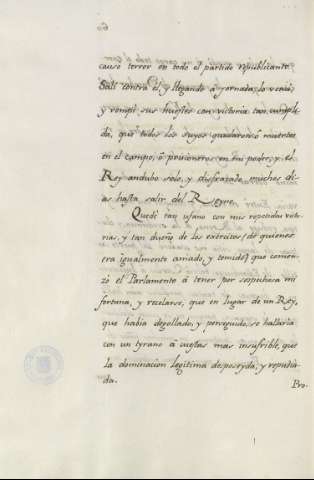 60
causó terror en todo el partido republicante.
Salí contra él, y llegando á jornada, lo vencí,
y rompí sus huestes con victoria tan cumpli-
da, que todos los suyos quedaron ó muertos
en el campo, ó prisioneros en mi poder; y el
Rey andubo solo, y disfrazado muchos di-
as hasta salir del Reyno.
Quedé tan ufano con mis repetidas victo-
rias, y tan dueño de los exercitos (de quienes
era igualmente amado, y temido) que comen-
zó el Parlamento á tener por sospechosa mi
fortuna, y recelarse, que en lugar de un Rey,
que habia degollado, y perseguido, se hallaria
con un tyrano á cuestas mas insufrible, que
la dominacion legitima desposeyda, y repudia-
da.
Pro-